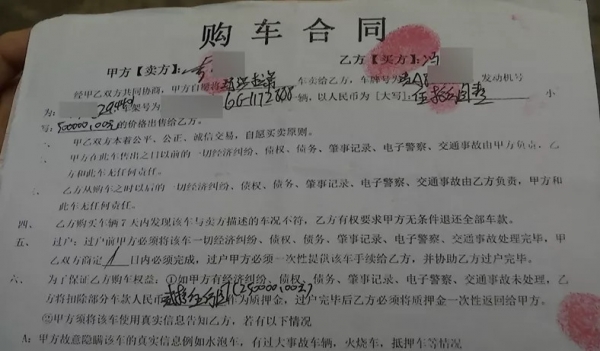 购车合同
甲方【卖方】： 乙方【买方】：冯
经甲乙双方共同协商，甲方自愿将 车卖给乙方，车牌号为 发动机号
为： 架号为 一辆，以人民币为［大写］： 小
写：500000.00元的价格出售给乙方。
甲乙双方本着公平、公正，诚信交易，自愿买卖原则。
甲方在此车售出之日以前的一切经济纠纷、债权、债务、肇事记录、电子警察、交通事故由甲方负责，乙
方和此车无任何责任。
乙方从购车之时以后的一切经济纠纷、债权、债务、肇事记录、电子警察、交通事故由乙方负责，甲方和
此车无任何责任。
四、 乙方购买车辆7天内发现该车与卖方描述的车况不符，乙方有权要求甲方无条件退还全部车款。
五、 过户：过户前甲方必须将该车一切经济纠纷、债权、债务、肇事记录、电子警察、交通事故处理完毕，甲
乙双方商定 1 日内必须完成，过户甲方必须一次性提供该车手续给乙方，并协助乙方过户完毕。
六、 为了保证乙方购车权益：①如甲方有经济纠纷、债权、债务、肇事记录、电子警察、交通事故未处理，乙
方将扣除部分车款人民币 (250000.00元)作为质押金，过户完毕后乙方必须将质押金一次性返回给甲方。
②甲方须将该车使用真实信息告知乙方，若有以下情况
A: 甲方故意隐瞒该车的真实信息例如水泡车，有过大事故车辆，火烧车，抵押车等情况